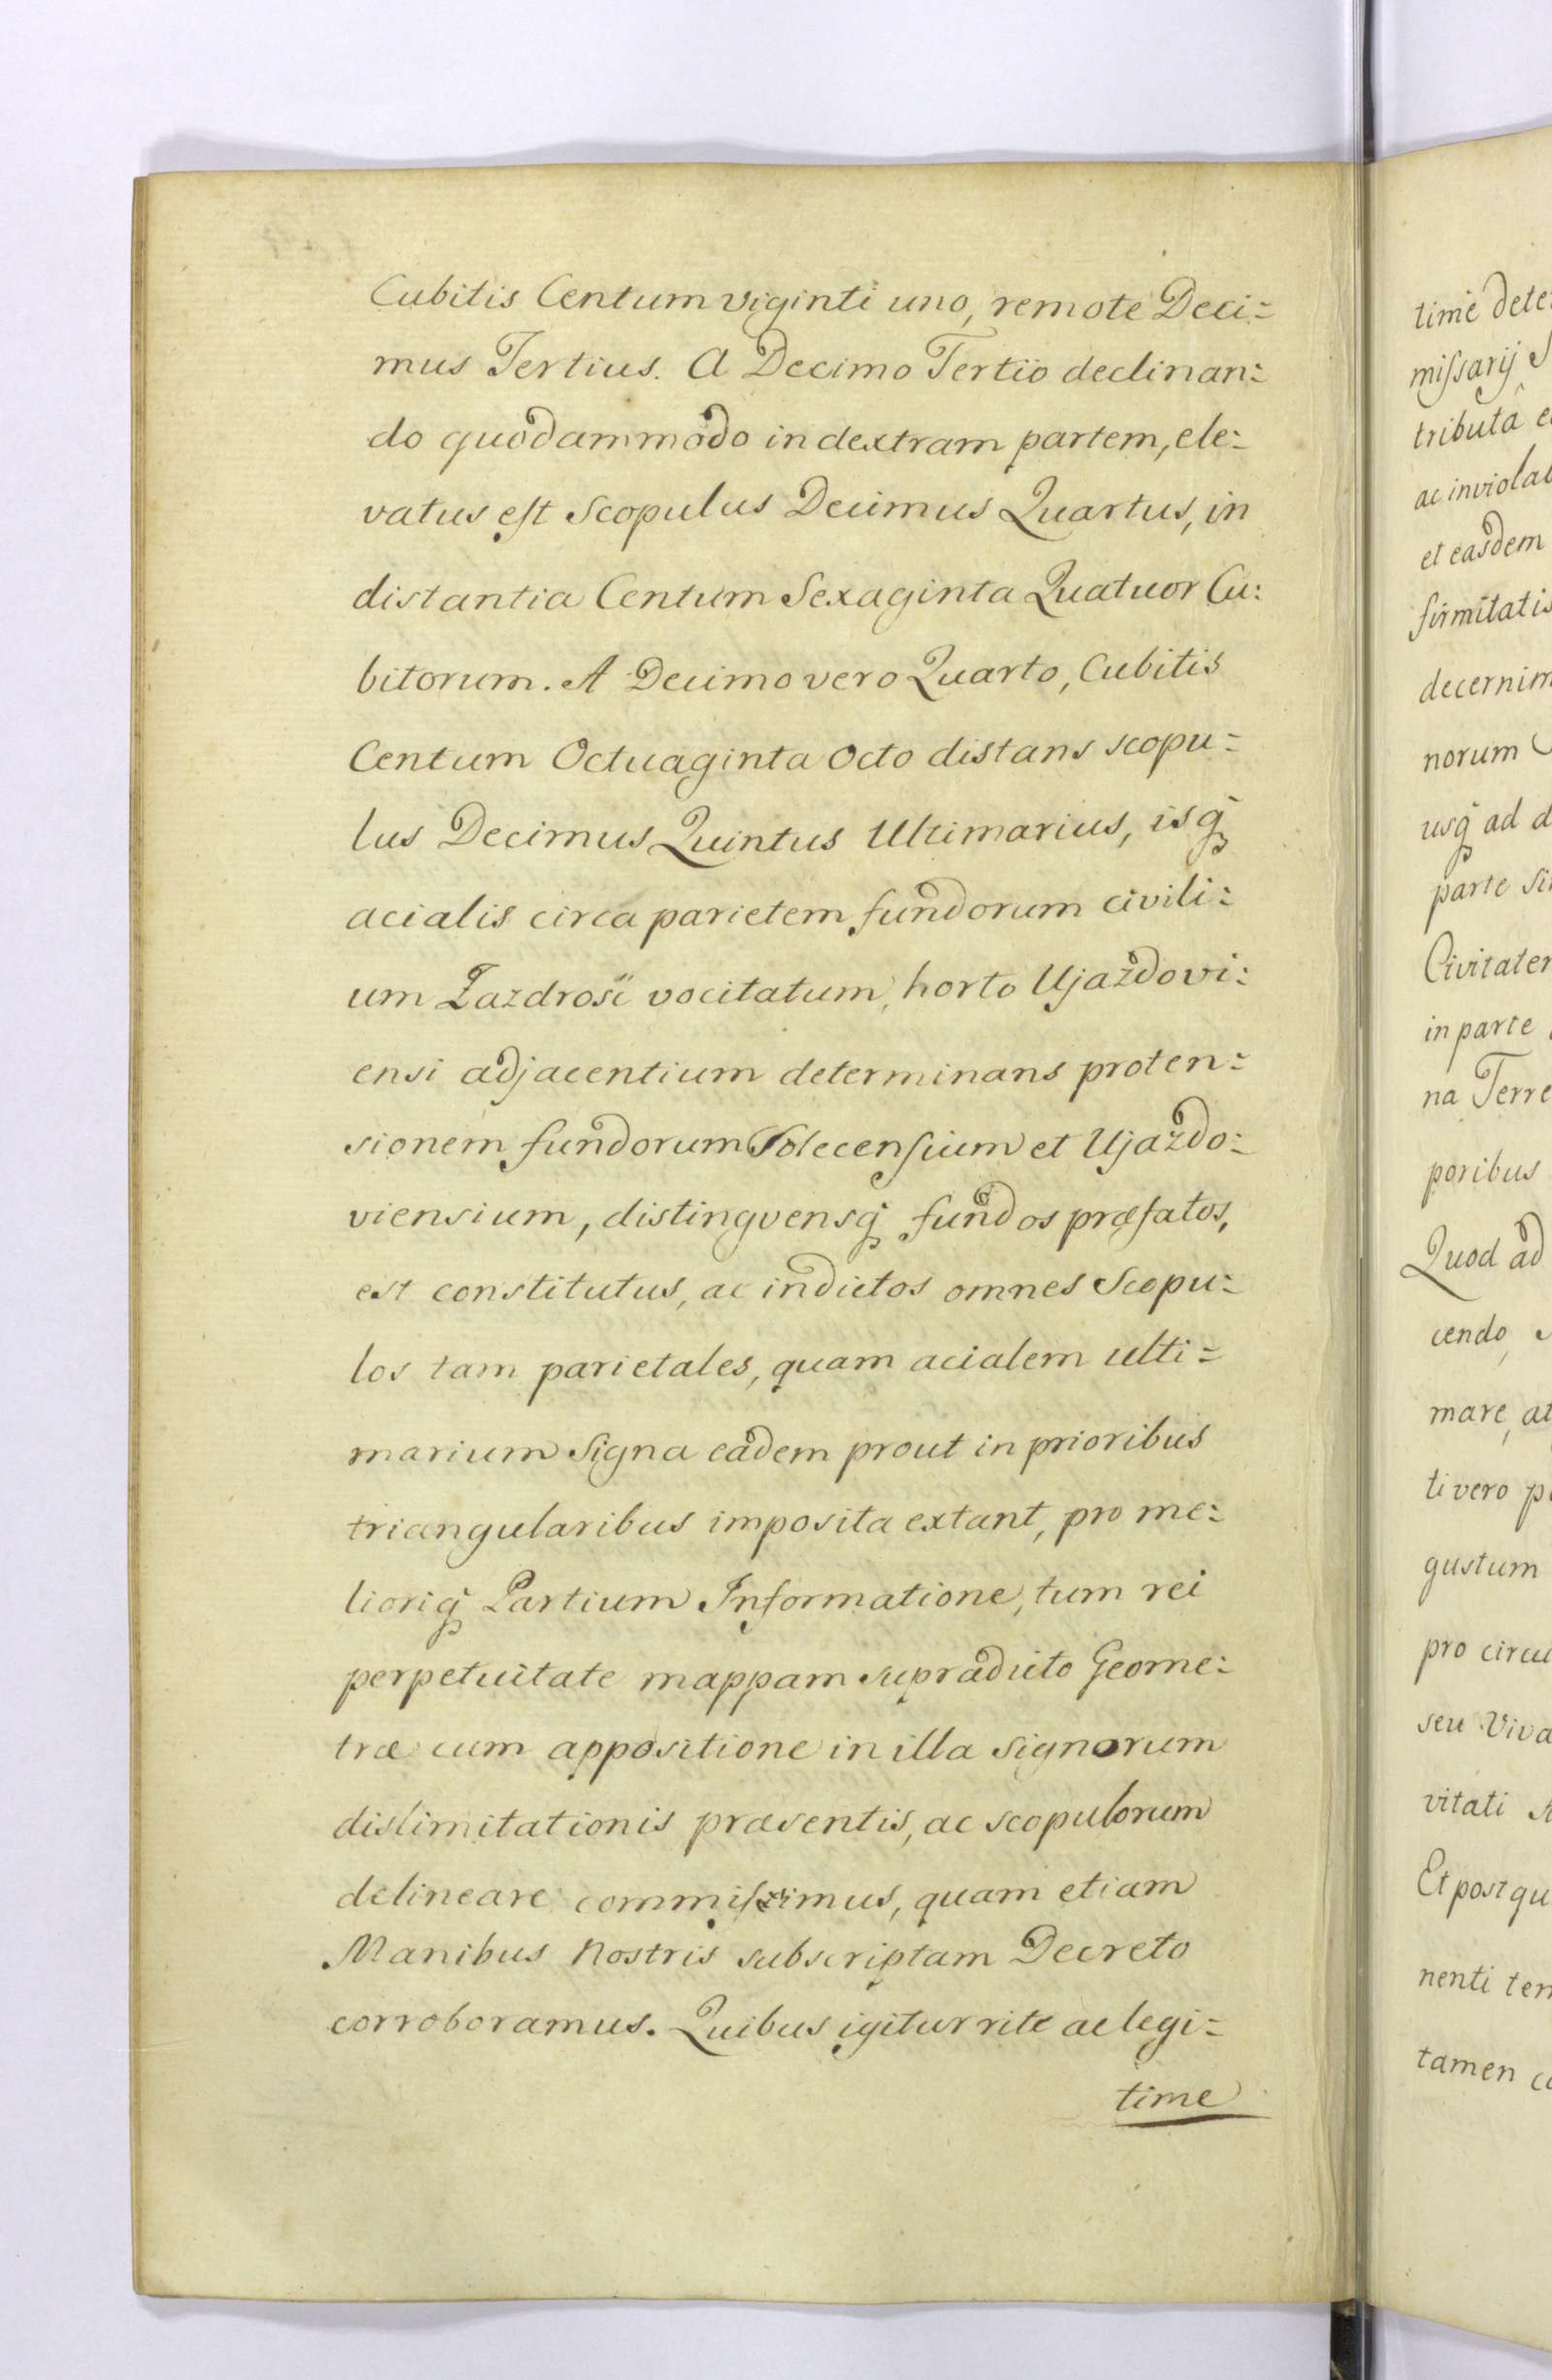 Cubitis Centum viginti uno, remote Deci=
mus Tertius. A Decimo Tertio declinan=
do quodammodo in dextram partem, ele=
vatus est Scopulus Decimus Quartus, in
distantia Centum Sexaginta Quatuor Cu:
bitorum. A Decimo vero Quarto, Cubitis
Centum Octuaginta Octo distans scopu=
lus Decimus Quintus Ultimarius, isq
acialis circa parietem fundorum civili=
um Zazdrosć vocitatum, horto Ujaždovi:
ensi adjacentium determinans proten=
sionem fundorum Solecensium et Ujazdo=
viensium, distingvensq fundos præfatos,
est constitutus, ac indictos omnes Scopu=
los tam parietales, quam acialem ulti=
marium Signa eadem prout in prioribus
triangularibus imposita extant, pro me=
lioriq Partium Informatione, tum rei
perpetuitate mappam supradicto Geome=
træ cum appositione in illa Signorum
dislimitationis præsentis, ac scopulorum
delineare commisimus, quam etiam
Manibus Nostris subscriptam Decreto
corroboramus. Quibus igitur rite ac legi=
time
time dete
missarij
tributa e
ac inviolab
et easdem
firmitatis
decernim
norum
usq ad d
parte si
Civitatem
in parte
na Terre
poribus
Quod ad
cendo,
mare, at
ti vero p
gustum
pro circu
seu Viva
vitati
Et post qu
nenti ter
tamen c